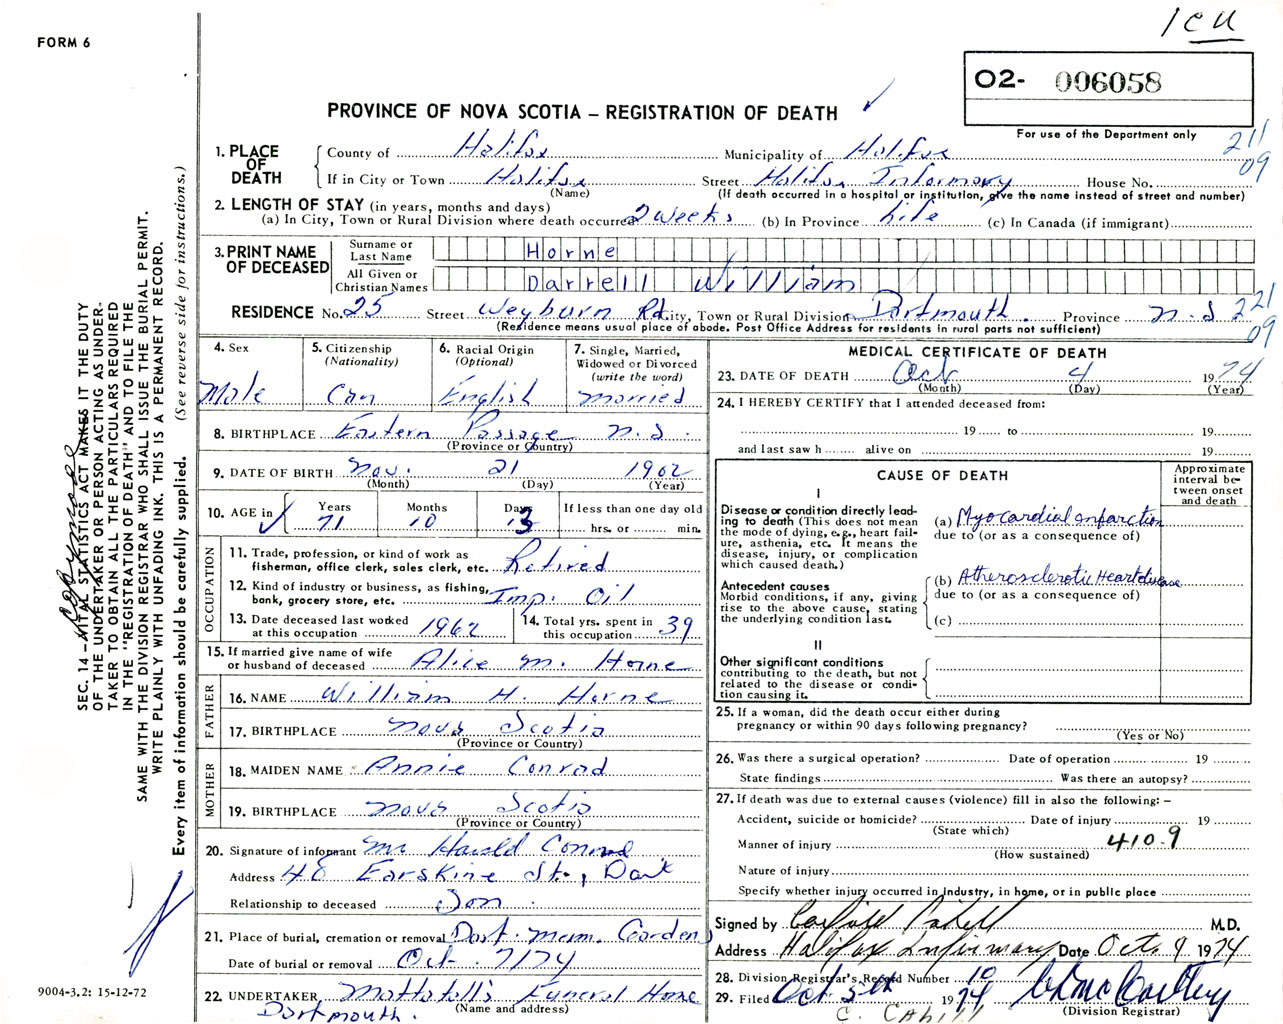 1CU
FORM 6
O2- 006058
For use of the Department only
PROVINCE OF NOVA SCOTIA – REGISTRATION OF DEATH ✓
211
09
1. PLACE OF DEATH
County of Halifax Municipality of Halifax
If in City or Town Halifax Street Halifax Infirmary House No.
(Name) (If death occurred in a hospital or institution, give the name instead of street and number)
2. LENGTH OF STAY (in years, months and days)
(a) In City, Town or Rural Division where death occurred 2 weeks (b) In Province Life (c) In Canada (if immigrant)
3. PRINT NAME OF DECEASED
Surname or Last Name Horne
All Given or Christian Names Darrell William
RESIDENCE No. 25 Street Weyburn Rd. City, Town or Rural Division Dartmouth. Province N.S
221
09
(Residence means usual place of abode. Post Office Address for residents in rural parts not sufficient)
4. Sex
Male
5. Citizenship (Nationality)
Can
6. Racial Origin (Optional)
English
7. Single, Married, Widowed or Divorced (write the word)
married
8. BIRTHPLACE Eastern Passage N.S.
(Province or Country)
9. DATE OF BIRTH Nov. 21 1902
(Month) (Day) (Year)
10. AGE in ✓ Years 71 Months 10 Days 13 If less than one day old hrs. or min.
OCCUPATION
11. Trade, profession, or kind of work as fisherman, office clerk, sales clerk, etc. Retired
12. Kind of industry or business, as fishing, bank, grocery store, etc. Imp. Oil
13. Date deceased last worked at this occupation 1962
14. Total yrs. spent in this occupation 39
15. If married give name of wife or husband of deceased Alice M. Horne
FATHER
16. NAME William H. Horne
17. BIRTHPLACE Nova Scotia
(Province or Country)
MOTHER
18. MAIDEN NAME Annie Conrad
19. BIRTHPLACE Nova Scotia
(Province or Country)
20. Signature of informant Mr Harold Conrad
Address 48 Erskine St., Dart
Relationship to deceased Son
21. Place of burial, cremation or removal Dart. Mem. Gardens
Date of burial or removal Oct. 7/74
22. UNDERTAKER Mattatall's Funeral Home
(Name and address)
Dartmouth.
MEDICAL CERTIFICATE OF DEATH
23. DATE OF DEATH Oct 4 1974
(Month) (Day) (Year)
24. I HEREBY CERTIFY that I attended deceased from:
19 to 19
and last saw h alive on 19
CAUSE OF DEATH
Approximate interval between onset and death
I
Disease or condition directly leading to death (This does not mean the mode of dying, e.g., heart failure, asthenia, etc. It means the disease, injury, or complication which caused death.)
(a) Myocardial infarction
due to (or as a consequence of)
Antecedent causes
Morbid conditions, if any, giving rise to the above cause, stating the underlying condition last.
(b) Atherosclerotic Heart disease
due to (or as a consequence of)
(c)
II
Other significant conditions contributing to the death, but not related to the disease or condition causing it.
25. If a woman, did the death occur either during pregnancy or within 90 days following pregnancy?
(Yes or No)
26. Was there a surgical operation? Date of operation 19
State findings Was there an autopsy?
27. If death was due to external causes (violence) fill in also the following: –
Accident, suicide or homicide? Date of injury 19
(State which)
Manner of injury 410.9
(How sustained)
Nature of injury
Specify whether injury occurred in Industry, in home, or in public place
Signed by Cahill M.D.
Address Halifax Infirmary Date Oct. 9 1974
28. Division Registrar's Record Number 10
29. Filed Oct 5th 1974
(Division Registrar)
C. CAHILL
SEC. 14 – VITAL STATISTICS ACT MAKES IT THE DUTY
OF THE UNDERTAKER OR PERSON ACTING AS UNDER-
TAKER TO OBTAIN ALL THE PARTICULARS REQUIRED
IN THE "REGISTRATION OF DEATH" AND TO FILE THE
SAME WITH THE DIVISION REGISTRAR WHO SHALL ISSUE THE BURIAL PERMIT.
WRITE PLAINLY WITH UNFADING INK. THIS IS A PERMANENT RECORD.
Every item of information should be carefully supplied. (See reverse side for instructions.)
9004-3.2: 15-12-72